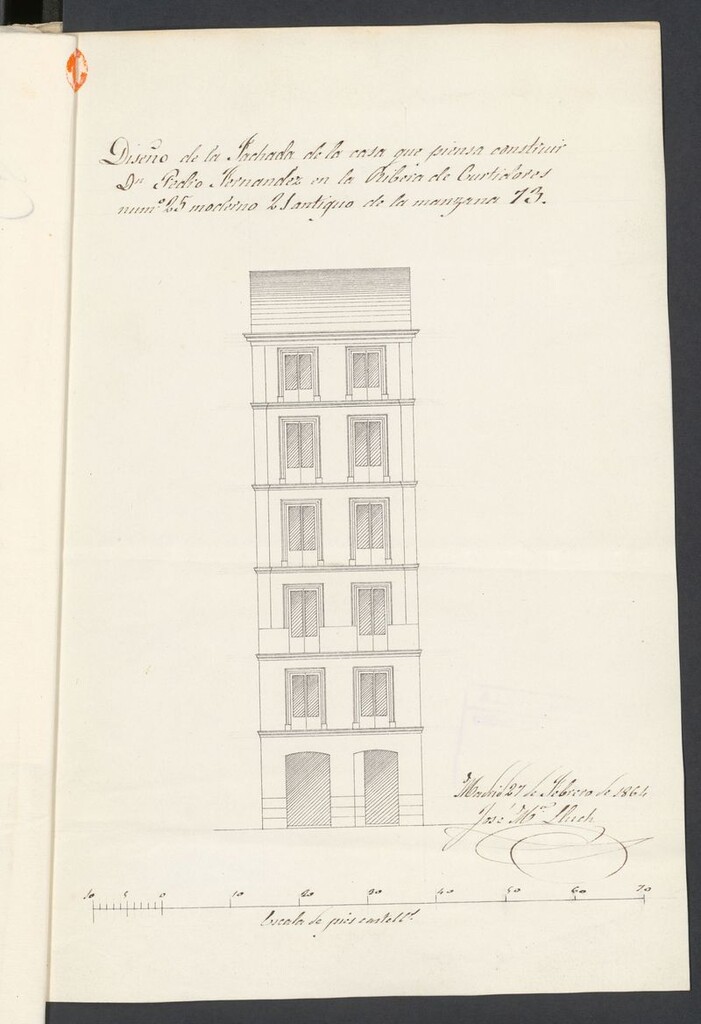 Diseño de la Fachada de la casa que piensa construir
Dn Pedro Hernandez en la Ribera de Curtidores
numº 25 moderno 21 antiguo de la manzana 73.
Madrid 27 de Febrero de 1864
José Mª Lluch
10 5 0 10 20 30 40 50 60 70
Escala de pies castells